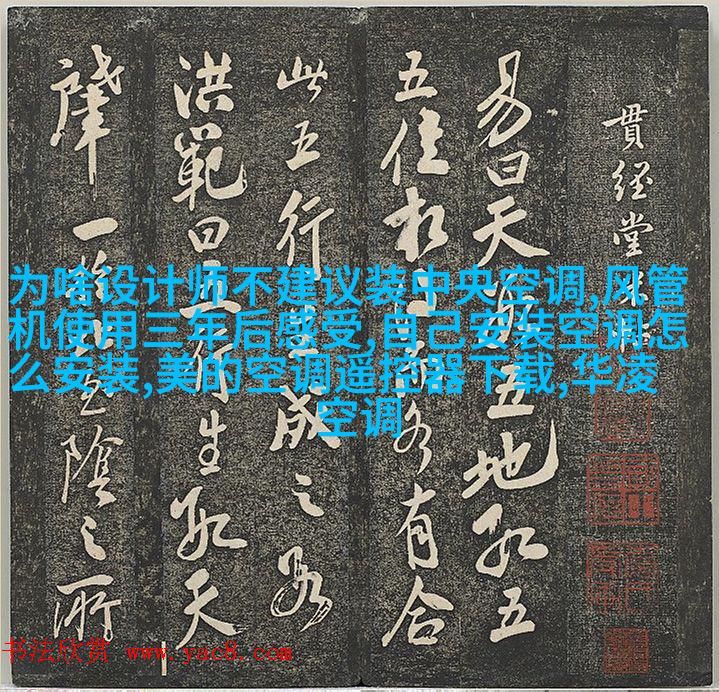 貫經堂米帖
易曰天數五地數五
五位相得而各有合
此五行生成之數
洪範曰五行生數天
一陰之所
为啥设计师不建议装中央空调,风管
机使用三年后感受,自己安装空调怎
么安装,美的空调遥控器下载,华凌
空调
书法欣赏 www.yac8.com